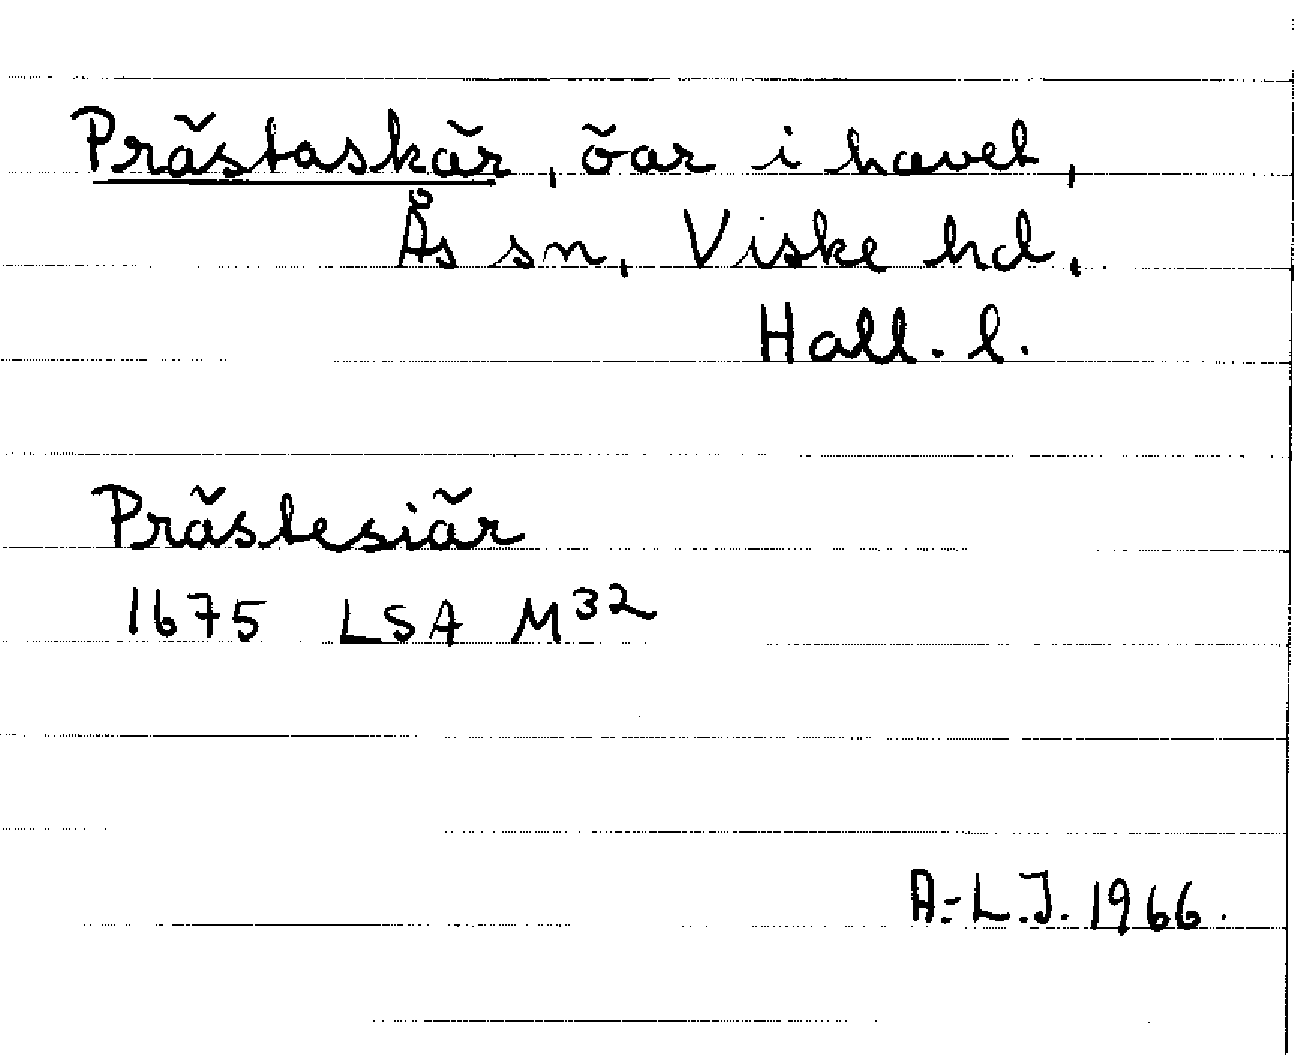 Prästaskär, öar i havet,
Ås sn, Viske hd,
Hall. l.
Prästesiär
1675 LSA M32
A.-L.J. 1966.